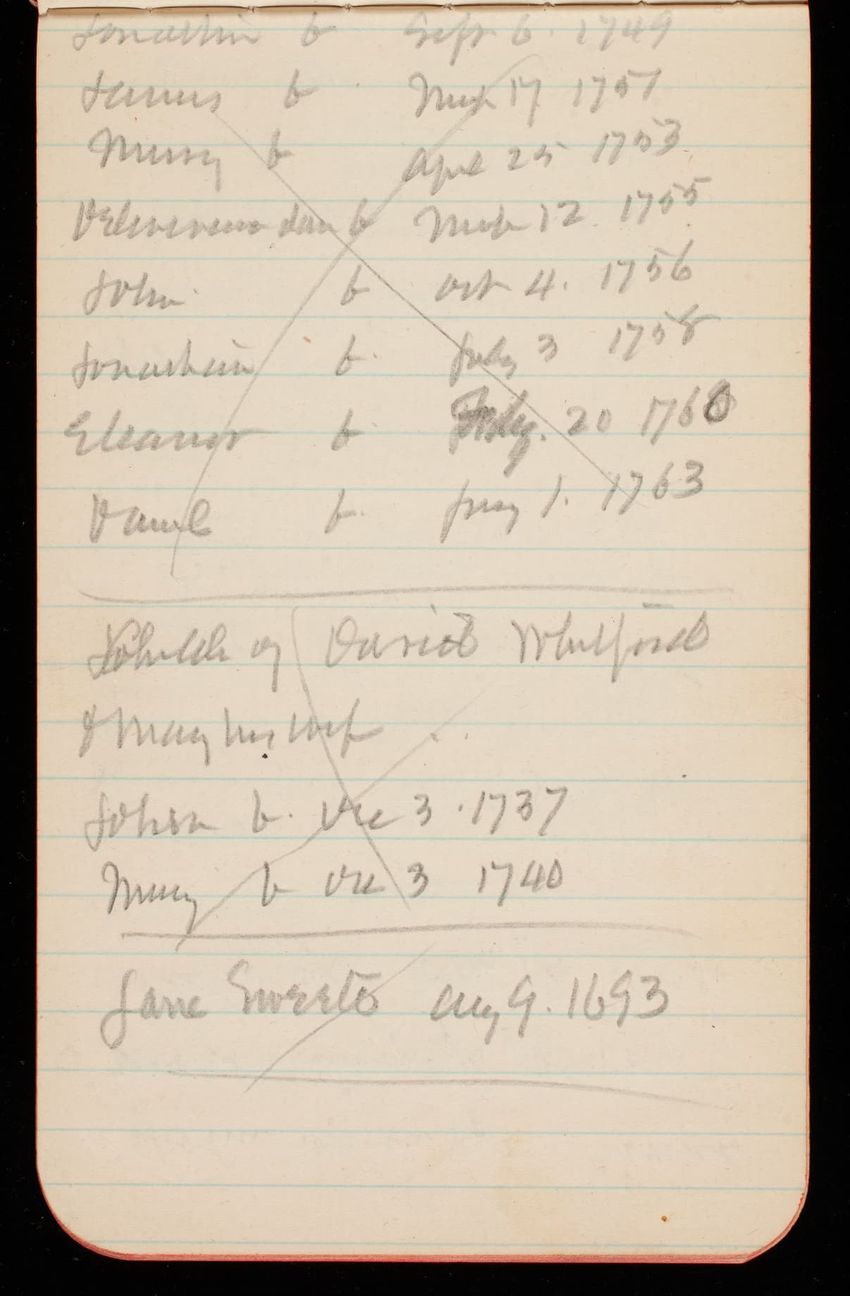 Jonathan b Sept 6. 1749
James b Mch 17 1751
Mary b Apl 25 1753
Deliverance dau b Mch 12 1755
John b Oct 4. 1756
Jonathan b. July 3 1758
Eleanor b 20 1760
Daniel b. 1. 1763
of David Whitford
& Mary his wife
John b. Dec 3. 1737
Mary b Dec 3 1740
Jane Sweeto Aug 9. 1693